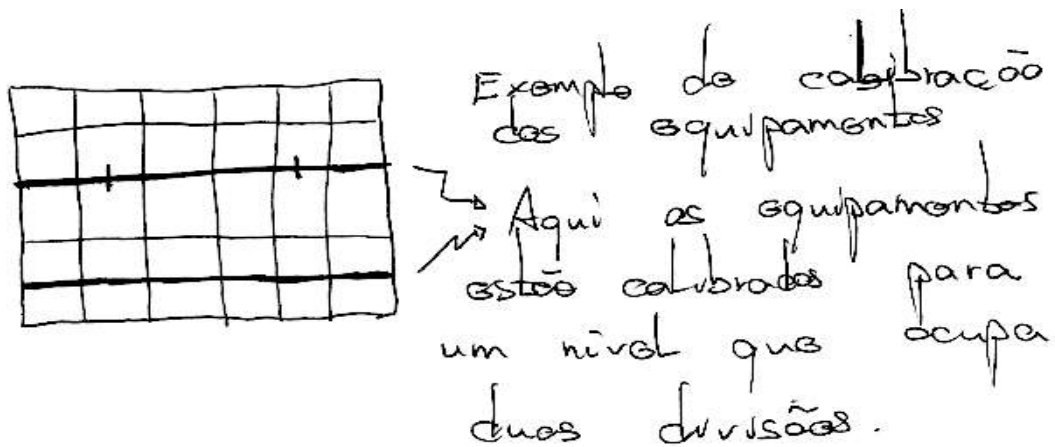 Exemplo de calibração
dos equipamentos
Aqui os equipamentos
estão calibrados para
um nível que ocupa
duas divisões.